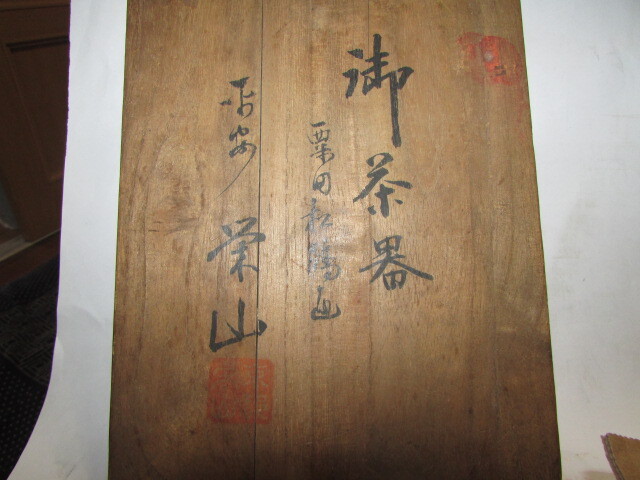 御茶器
粟田松鶴画
平安 栄山